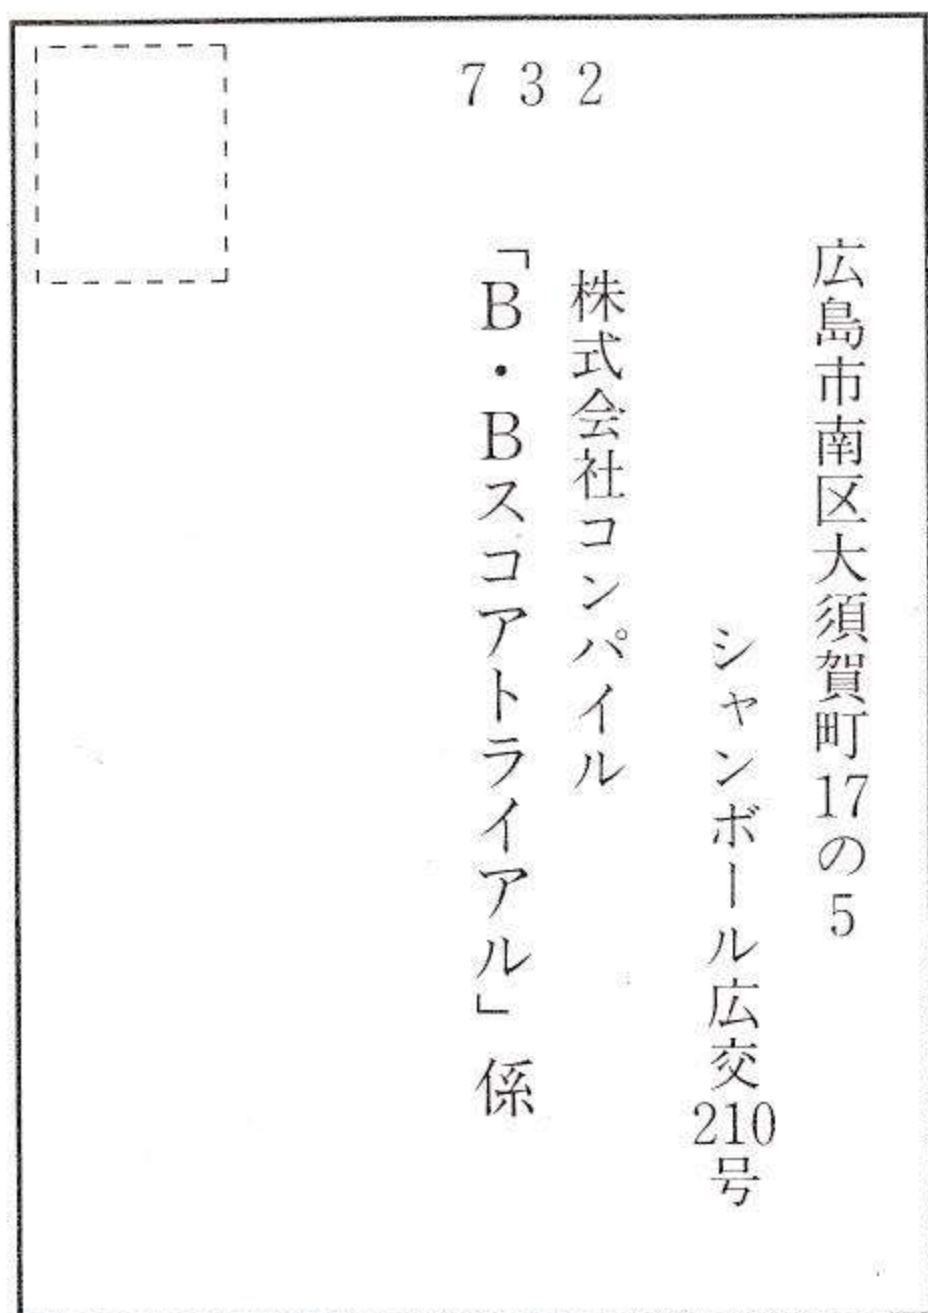 732
広島市南区大須賀町17の5
シャンボール広交210号
株式会社コンパイル
「B・Bスコアトライアル」係